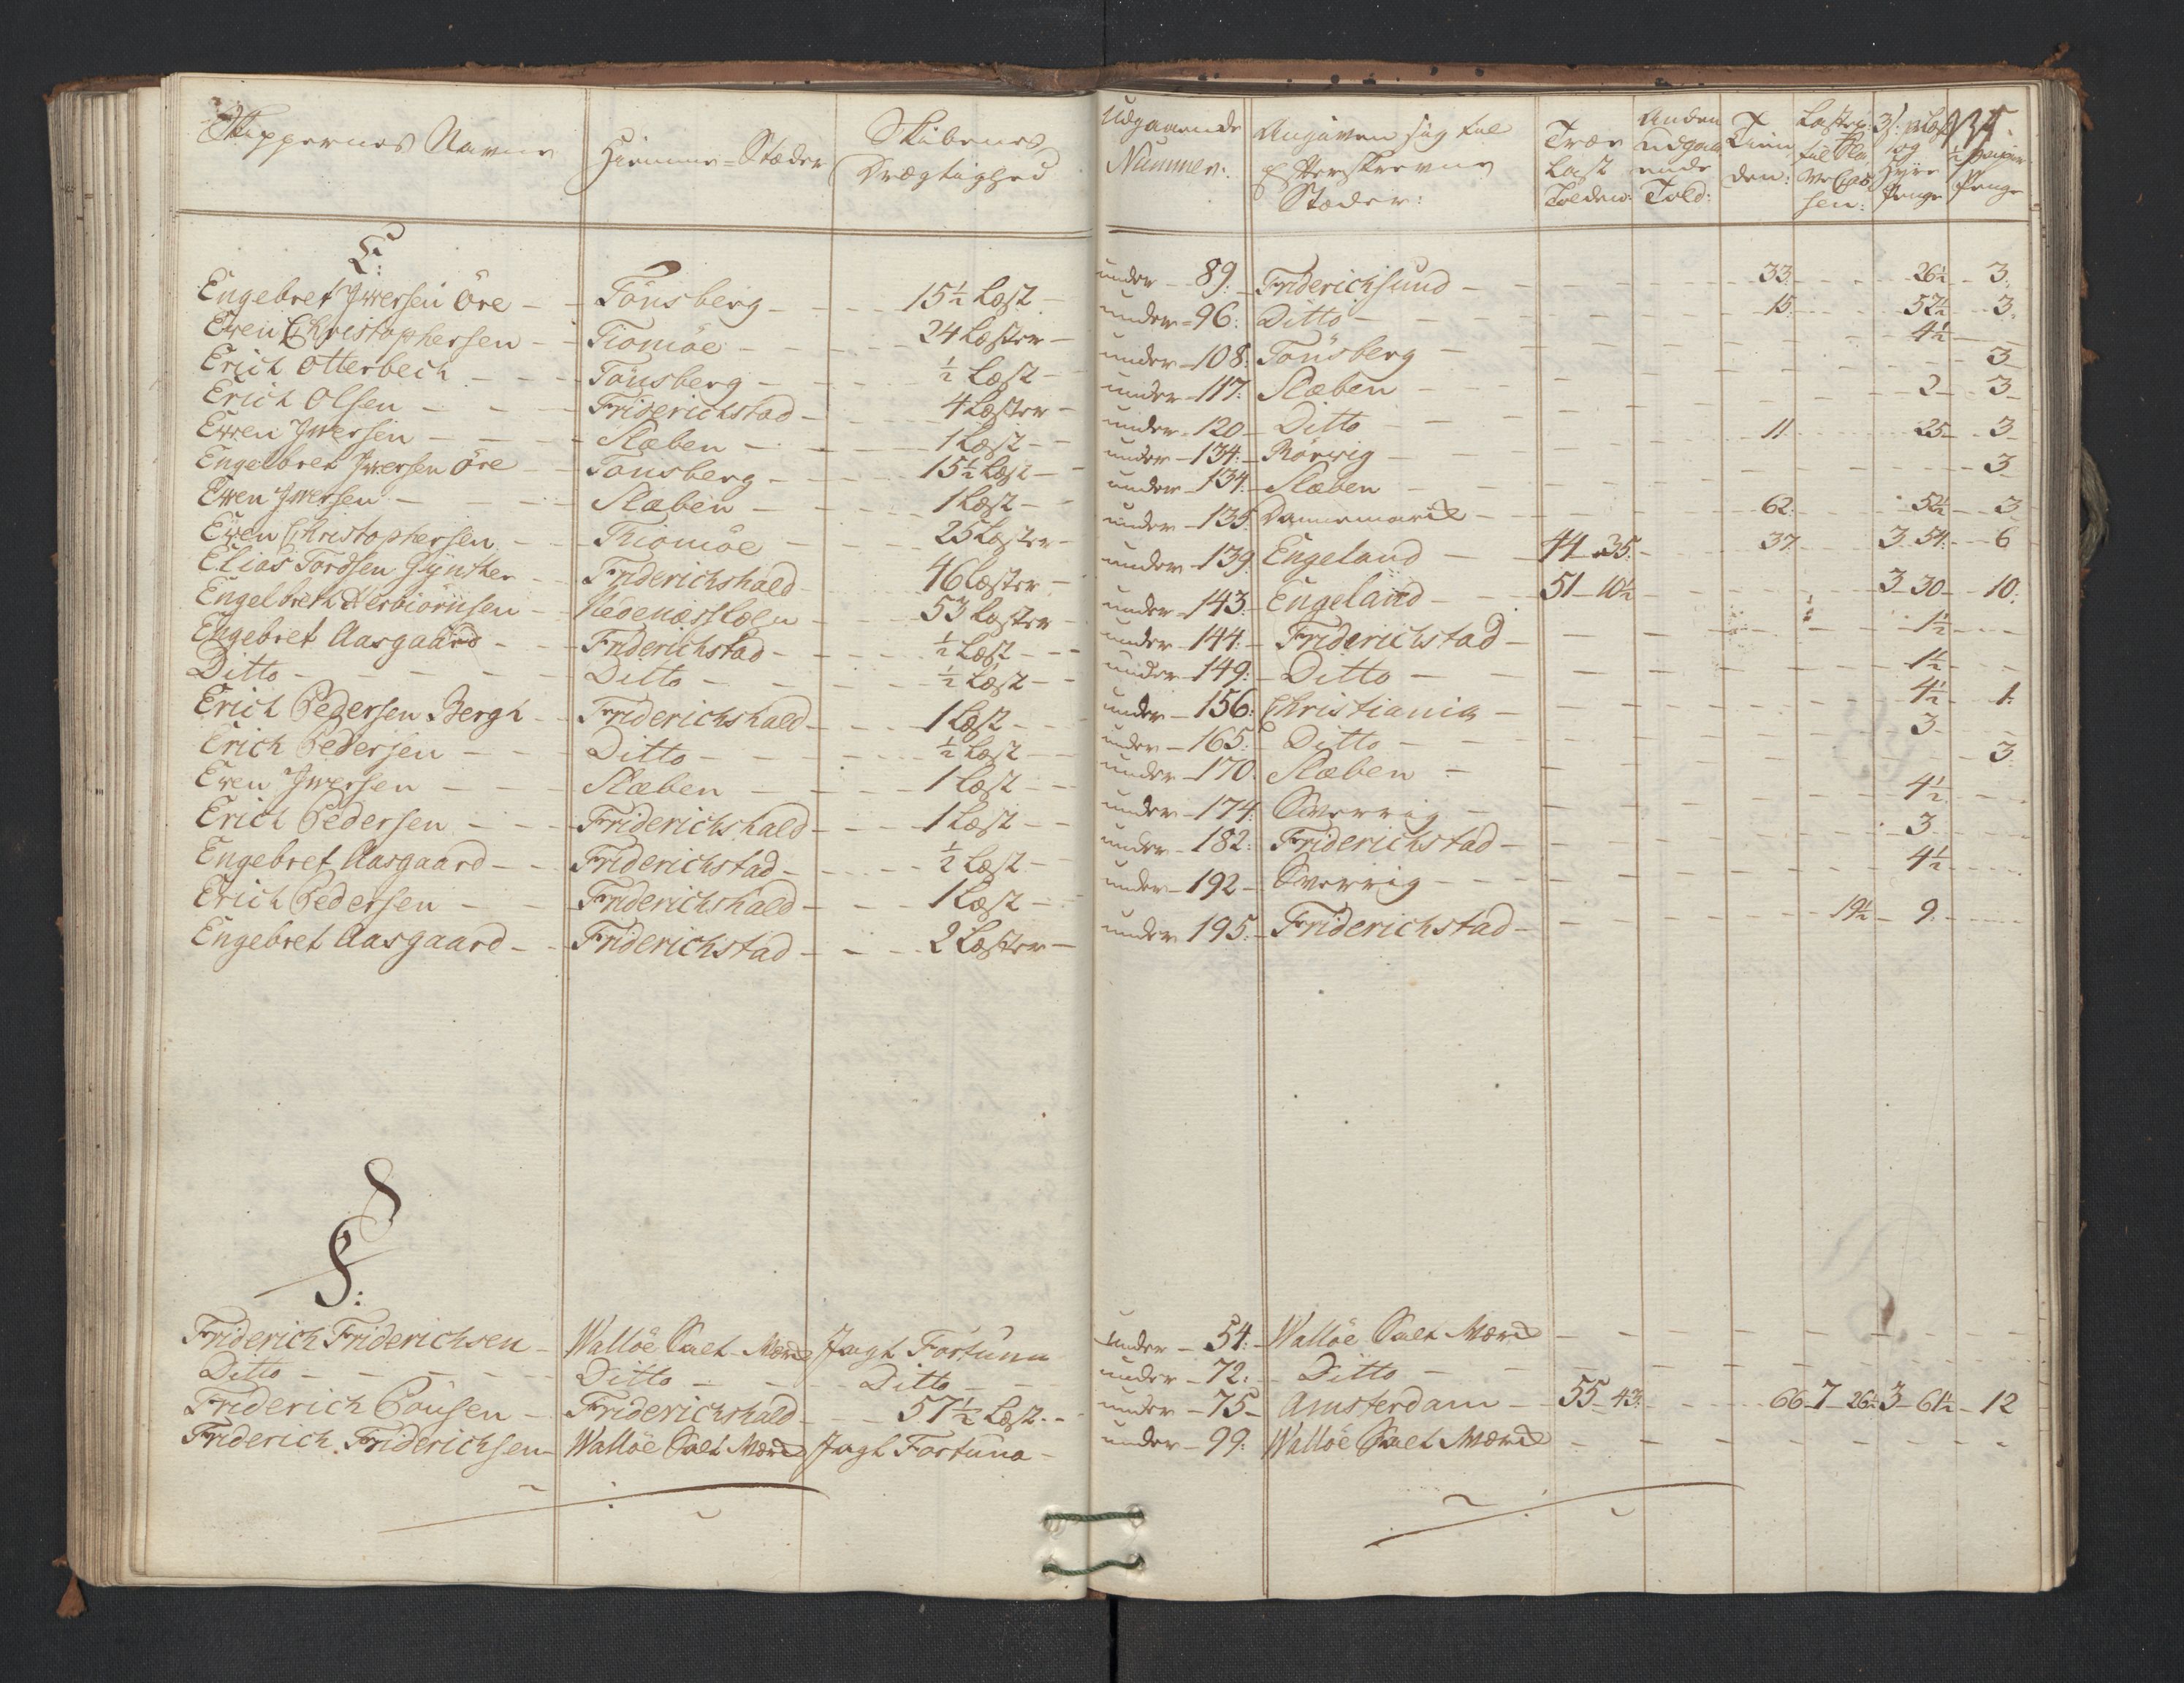 Skippernes Navne Hiemme-Stæder Skibenes Drægtighed Udgaaende Nummer: Angiven sig til efterskrevne Stæder: Træe Last Tolden: Anden udgaaende Told: Tienden:
E:
Engebret Iwersen Öre - - Tönsberg - - - 15½ Læst - under - 89: - Friderichsund - 33. - 26½ - 3.
Ewen Christophersen - - Tiomöe - - - 24 Læster - under - 96: Ditto - 15. - 52½ - 3.
Erich Otterbech - - - Tönsberg - - ½ Læst - under - 108: Tönsberg - 4½
Erich Olsen - - - Friderichstad - 4 Læster - under - 117: Slæben - 3
Ewen Iwersen - - - Slæben - - - 1 Læst - - under - 120 - Ditto - 2 - 3
Engelbret Iwersen Öre - - Tönsberg - - - 15½ Læst - under - 134: - Rörwig - 11 - 25 - 3
Ewen Iwersen - - - Slæben - - - 1 Læst - under - 134: - Slæben - 3
Ewen Christophersen - - Thiomöe - - - 25 Læster - under - 135 Dannemarck - 62. - 52½ - 3
Elias Tordsen Gynther - - Friderichshald - 46 Læster - under - 139 Engeland - 44 - 35. - 37 - 3 - 54. - 6
Engelbreth Aerbiörnsen - - Nedenæss Læhn - 53 Læster - under - 143: - Engeland - 51 - 10½ - 3 - 30 - 10.
Engebret Aasgaard - - - Friderichstad - - ½ Læst - - under - 144: - Friderichstad - 1½
Ditto - - - Ditto - - - ½ Læst - - under - 149: - Ditto - 1½
Erich Pedersen Bergh - - Friderichshald - - - 1 Læst - - under - 156: Christiania - 4½ - 1.
Erich Pedersen - - - Ditto - - - ½ Læst - - under - 165: - Ditto - 3
Ewen Iwersen - - - Slæben - - - 1 Læst - - under - 170. Slæben - 3.
Erich Pedersen - - - Friderichshald - - - 1 Læst - - under - 174: Swerrig - 4½
Engebret Aasgaard - - Friderichstad - - - ½ Læst - under - 182: - Friderichstad - 3
Erich Pedersen - - Friderichshald - - - 1 Læst - - under - 192 - Swerrig - 4½
Engebret Aasgaard - - Friderichstad - - - 2 Læster - under 195: - Friderichstad - 19½ - 9.
F:
Friderich Friderichsen - Walløe Salt-Værck Jagt Fortuna under - 54: - Walløe Salt Værck
Ditto - - - Ditto - - - Ditto - - under - 72: - Ditto
Friderich Poulsen - Friderichshald - - - 57½ Læst - - under - 75 - Amsterdam - 55 - 43. - 66 - 7 - 26½ 3 - 61½ - 12
Friderich Friderichsen - Walløe Salt Værck Jagt Fortuna - under - 99: Walløe Salt Værck